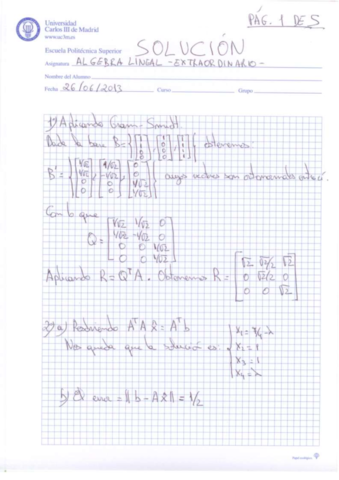 PÁG. 1 DE 5
Universidad
Carlos III de Madrid
www.uc3m.es
SOLUCIÓN
Escuela Politécnica Superior
Asignatura: ALGEBRA LINEAL -EXTRAORDINARIO-
Nombre del Alumno:
Fecha 26/06/2013 Curso: Grupo:
1) Aplicando Gram-Smidt.
Dada la base B= obtenemos
B'= { [1/√2 1/√2 0 0], [1/√2 -1/√2 0 0], [0 0 1/√2 1/√2] } cuyos vectores son
Con lo que
Q = [ 1/√2 1/√2 0
1/√2 -1/√2 0
0 0 1/√2
0 0 1/√2 ]
Aplicando R=QᵀA. Obtenemos R = [ √2 √2/2 √2
0 √2/2 0
0 0 √2 ]
2) a) Resolviendo AᵀA x̂ = Aᵀb
Nos queda que la solución es:
x₂ = 1
x₃ = 1
x₄ = λ
b) El error = ‖b - Ax̂‖ = 1/2